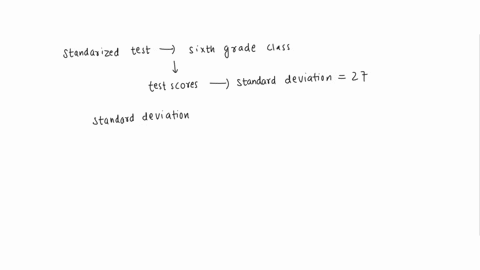 standarized test → sixth grade class
↓
test scores → standard deviation = 27
standard deviation